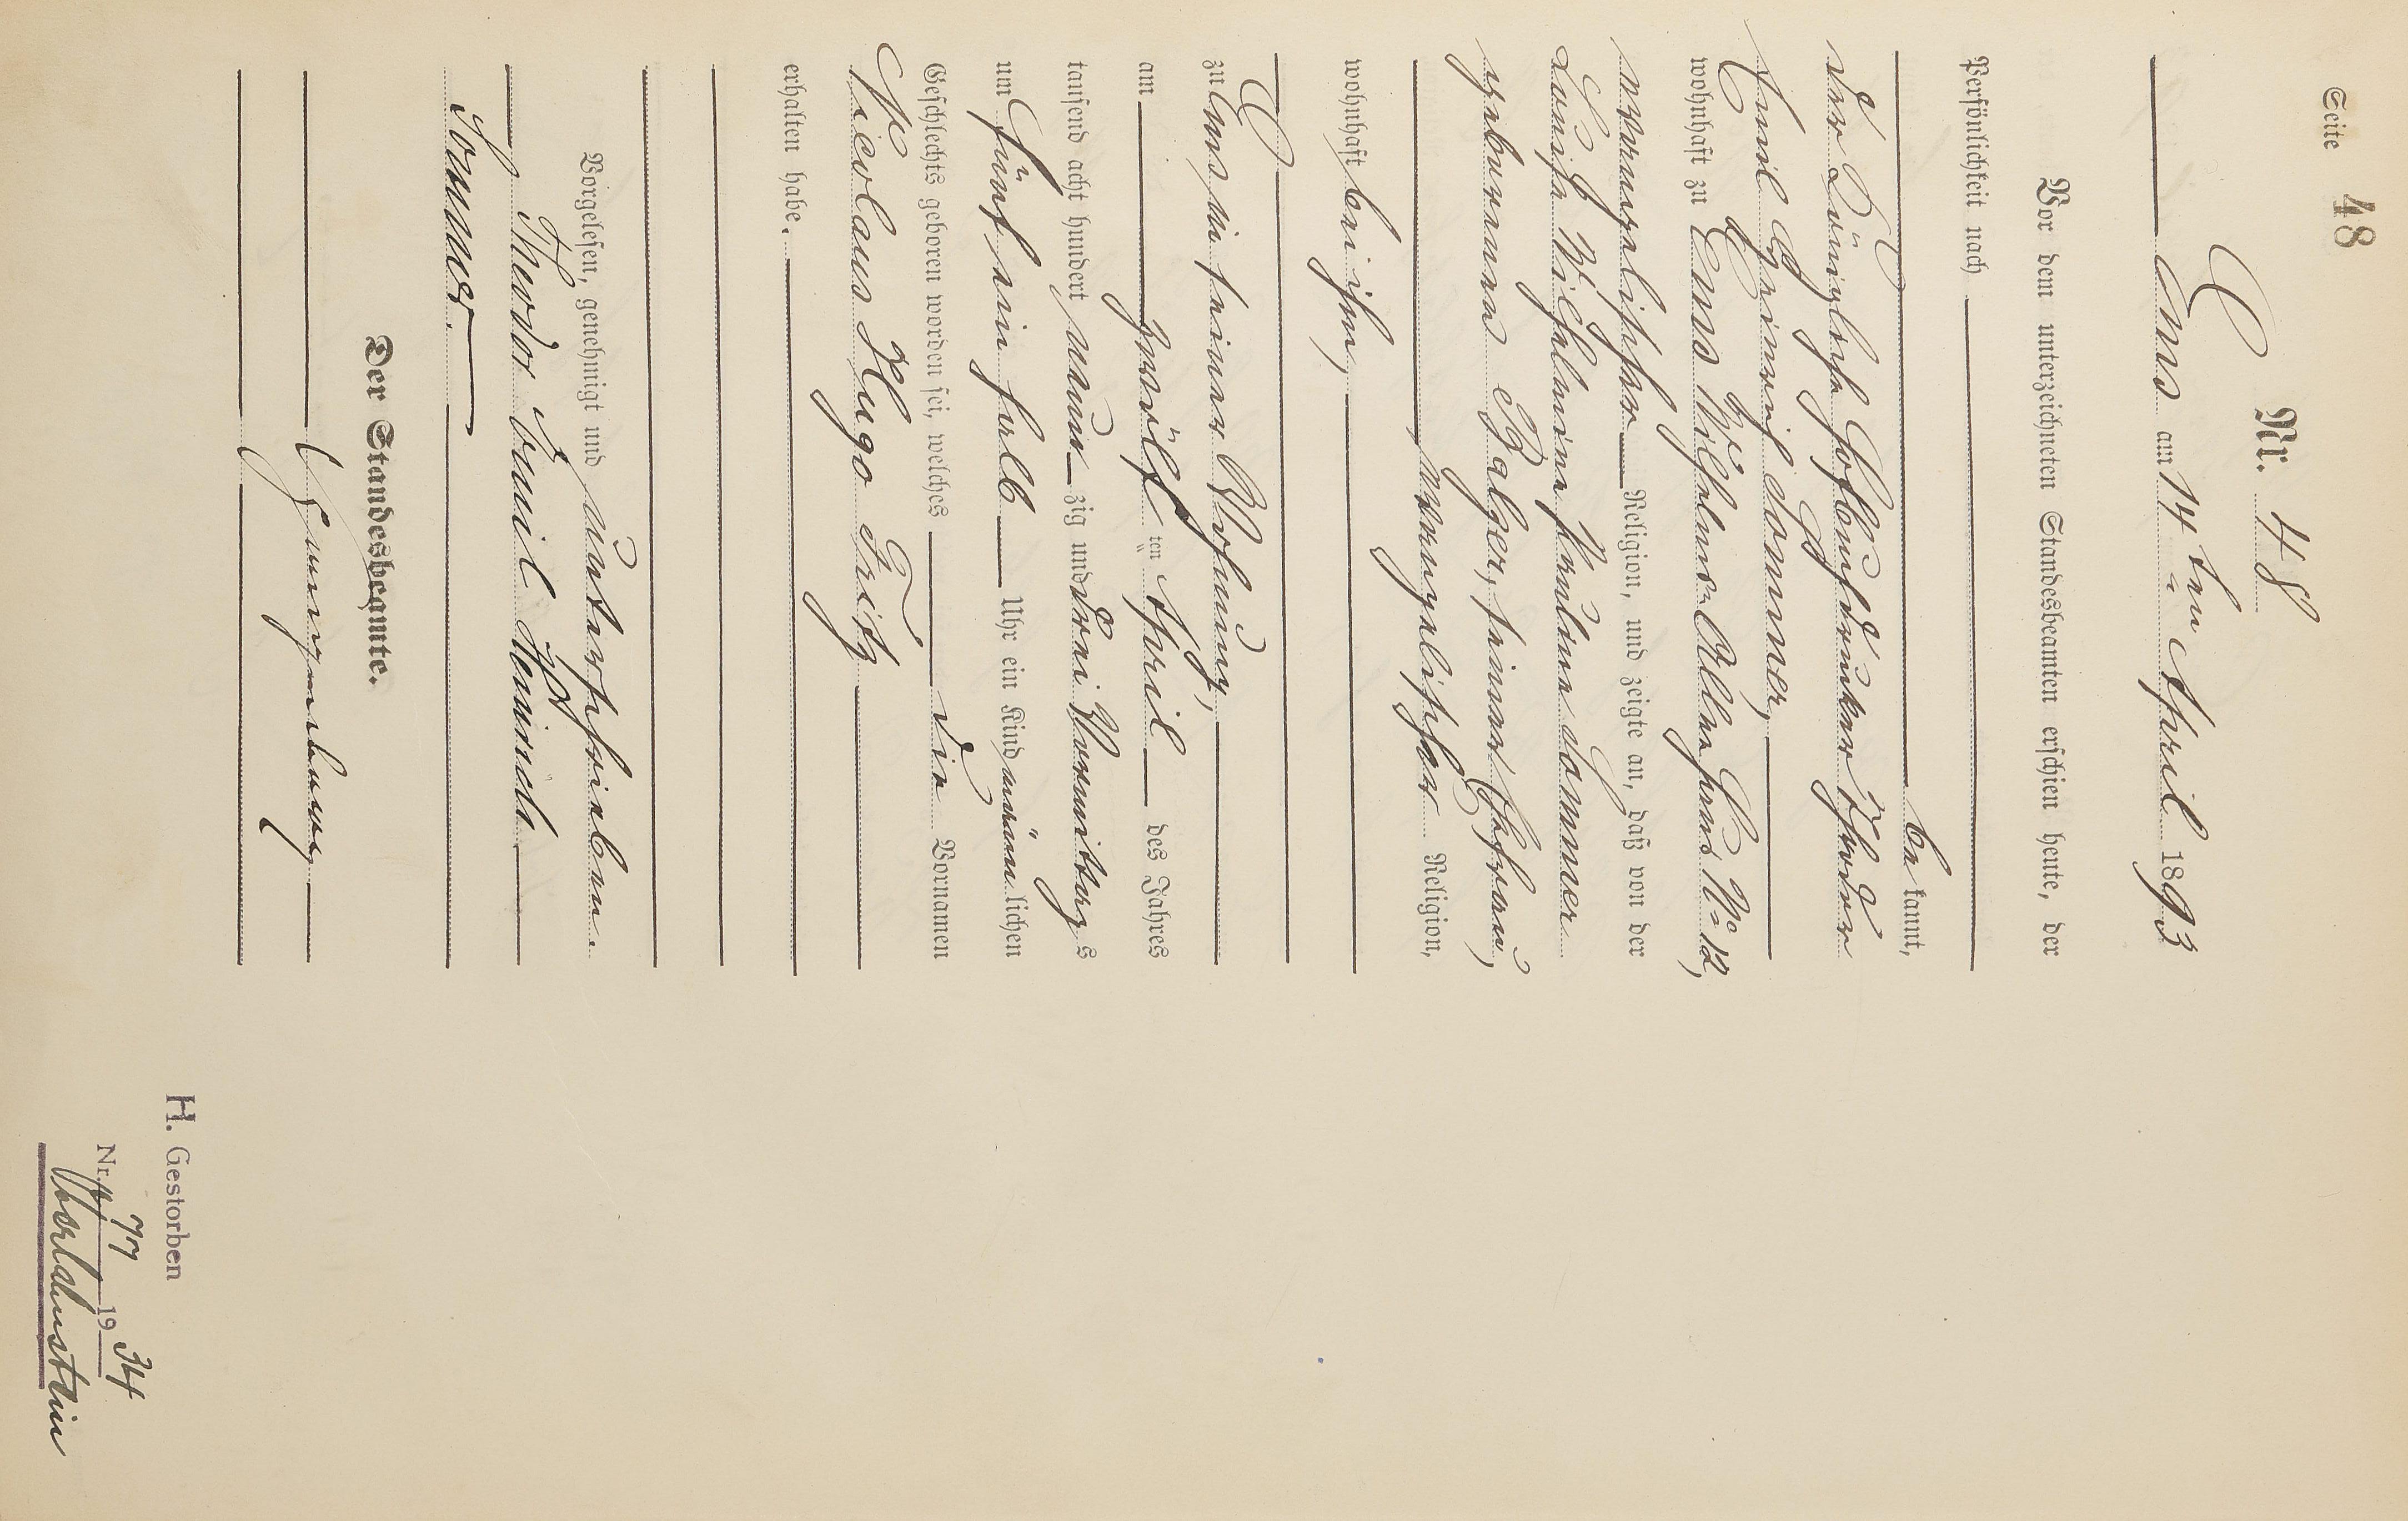 Seite 48
Nr. 48
Ems am 14ten April 1893
Vor dem unterzeichneten Standesbeamten erschien heute, der
Persönlichkeit nach
bekannt,
der Königliche Hofbuchdrucker Theodor
Emil Heinrich Sommer,
wohnhaft zu Ems Wilhelms-Allee Haus No 12,
evangelischer Religion, und zeigte an, daß von der
Louise Wilhelmine Pauline Sommer
geborenen Balzer, seiner Ehefrau,
evangelischer Religion,
wohnhaft bei ihm,
zu Ems in seiner Wohnung,
am zwölften April des Jahres
tausend acht hundert neunzig und drei Vormittags
um fünf ein halb Uhr ein Kind männlichen
Geschlechts geboren worden sei, welches die Vornamen
Nicolaus Hugo Fritz
erhalten habe.
Vorgelesen, genehmigt und unterschrieben.
Theodor Emil Heinrich
Sommer.
Der Standesbeamte.
H. Gestorben
Nr. 77 1934
Oberlahnstein